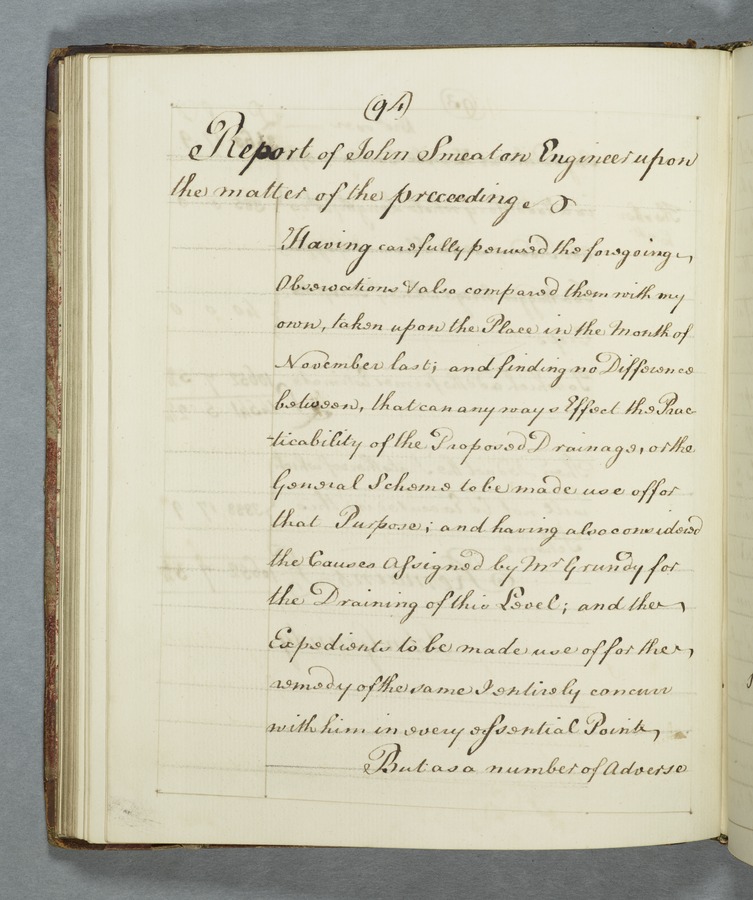 (94)
Report of John Smeaton Engineer upon
the matter of the preceeding &
Having carefully perused the foregoing
Observations & also compared them with my
own, taken upon the Place in the Month of
November last; and finding no Difference
between, that can any ways Effect the Prac
-ticability of the Proposed Drainage, or the
General Scheme to be made use of for
that Purpose; and having also considered
the Causes Assigned by Mr Grundy for
the Draining of this Level; and the
Expedients to be made use of for the
remedy of the same I entirely concurr
with him in every essential Point,
But as a number of Adverse